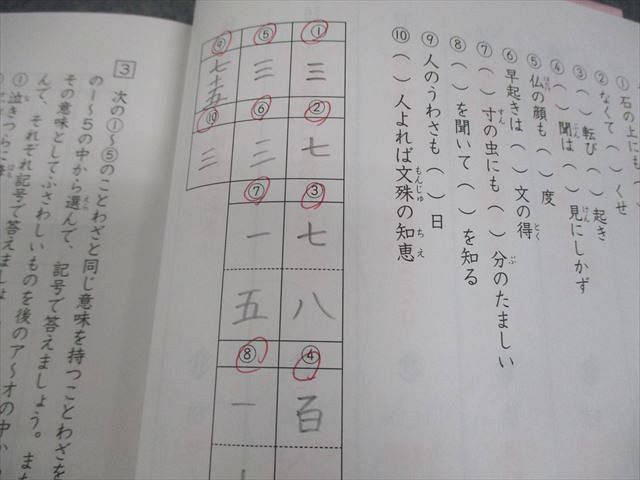 ① 石の上にも（
② なくて（ ）くせ
③（ ）転び（ ）起き
④（ ）聞は（ ）見にしかず
⑤ 仏の顔も（ ）度
⑥ 早起きは（ ）文の得
⑦（ ）寸の虫にも（ ）分のたましい
⑧（ ）を聞いて（ ）を知る
⑨ 人のうわさも（ ）日
⑩（ ）人よれば文殊の知恵
① 三
② 七
③ 七 八
④ 百
⑤ 三
⑥ 三
⑦ 一 五
⑧ 一
⑨ 七十五
⑩ 三
3 次の①〜⑤のことわざと同じ意味を持つことわざを
の1〜5の中から選んで、記号で答えましょう。また
その意味としてふさわしいものを後のア〜オの中か
んで、それぞれ記号で答えましょ
① 泣きつらに